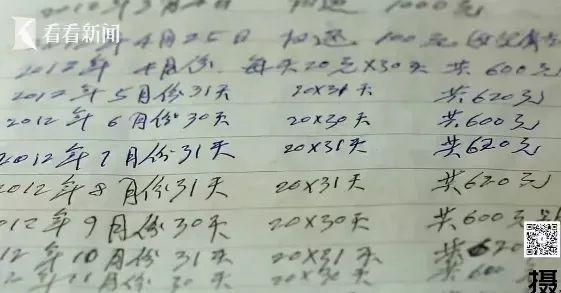 看看新闻
月 1000元
年4月25日 扣退 100元
2012年 4月份 每天20元×30天 共600元
2012年5月份31天 20×31天 共620元
2012年6月份30天 20×30天 共600元
2012年7月份31天 20×31天 共620元
2012年8月份31天 20×31天 共620元
012年9月份30天 20×30天 共600元
12年10月份31天 20×31天 共620
月份30天 20×30天 共600
摄